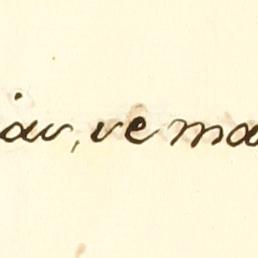 iav, ve ma